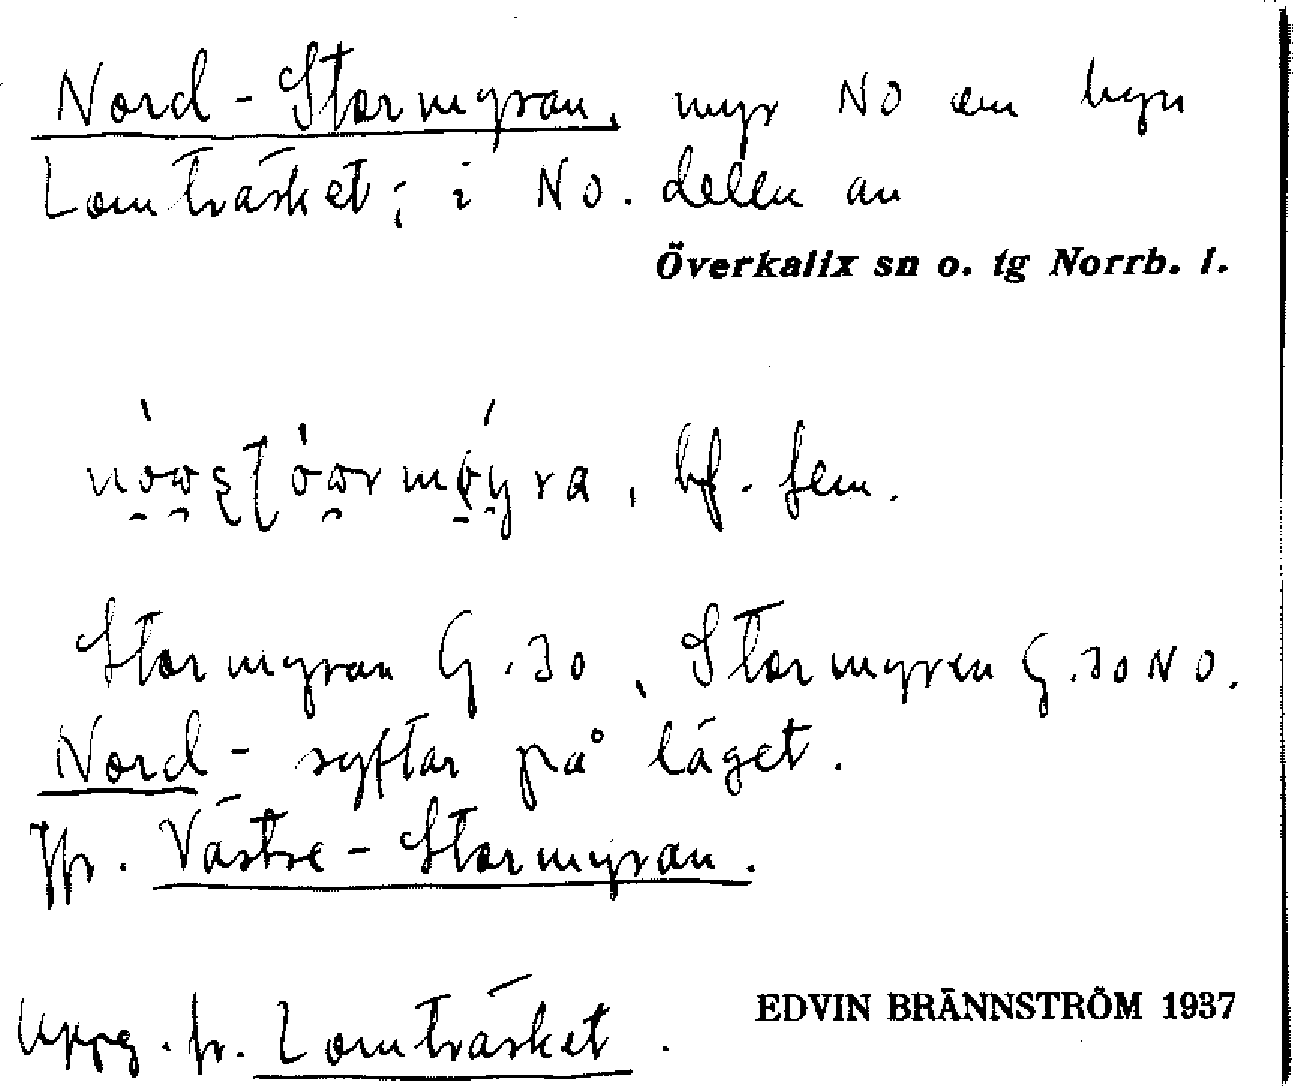 Nord-Stormyran, myr NO om byn
Lomträsket; i NO. delen av
Överkalix sn o. tg Norrb. l.
bf. fem.
Stormyran G.30, Stormyren G.30NO.
Nord- syftar på läget.
Jfr. Västre-Stormyran.
Uppg. fr. Lomträsket.
EDVIN BRÄNNSTRÖM 1937